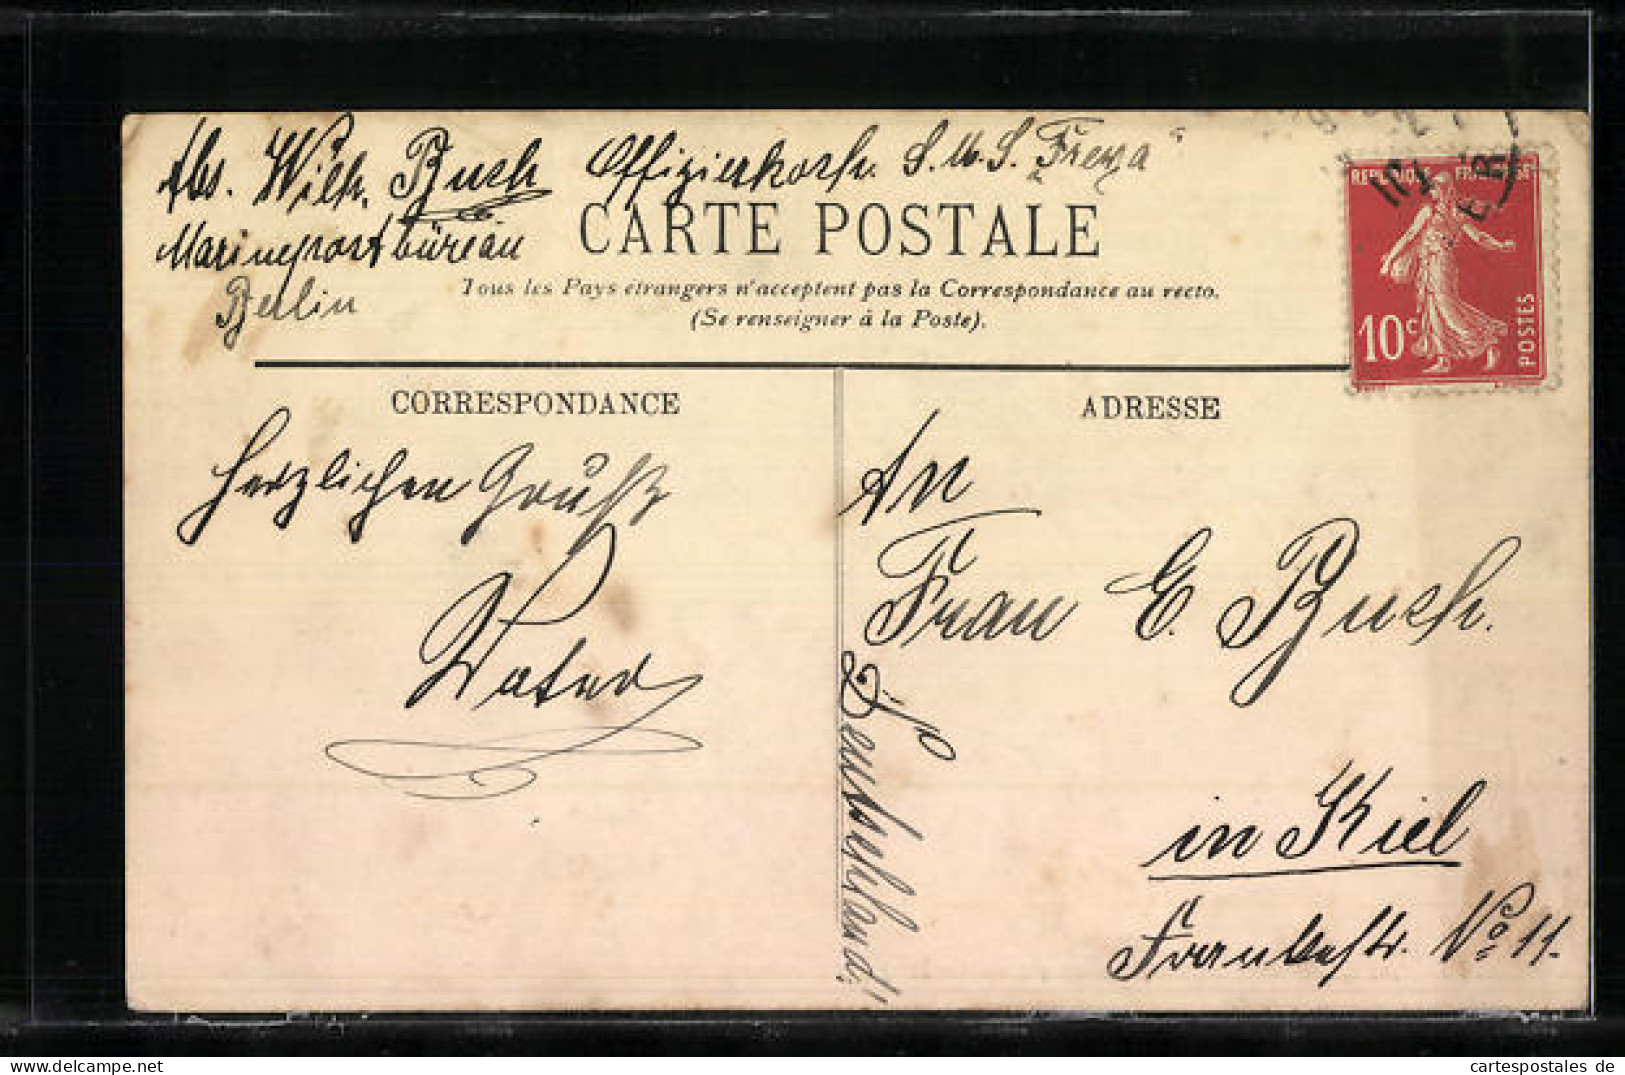 Abs. Wilh. Busch Offizierkoch. S.M.S. Freya"
Marinepostbüreau
Berlin
CARTE POSTALE
Tous les Pays étrangers n'acceptent pas la Correspondance au recto.
(Se renseigner à la Poste).
REPUBLIQUE FRANÇAISE
10c POSTES
CORRESPONDANCE
Herzlichen Gruß
Vater
ADRESSE
An
Frau E. Busch.
in Kiel
No 11.
Deutschland!
cartespostales de